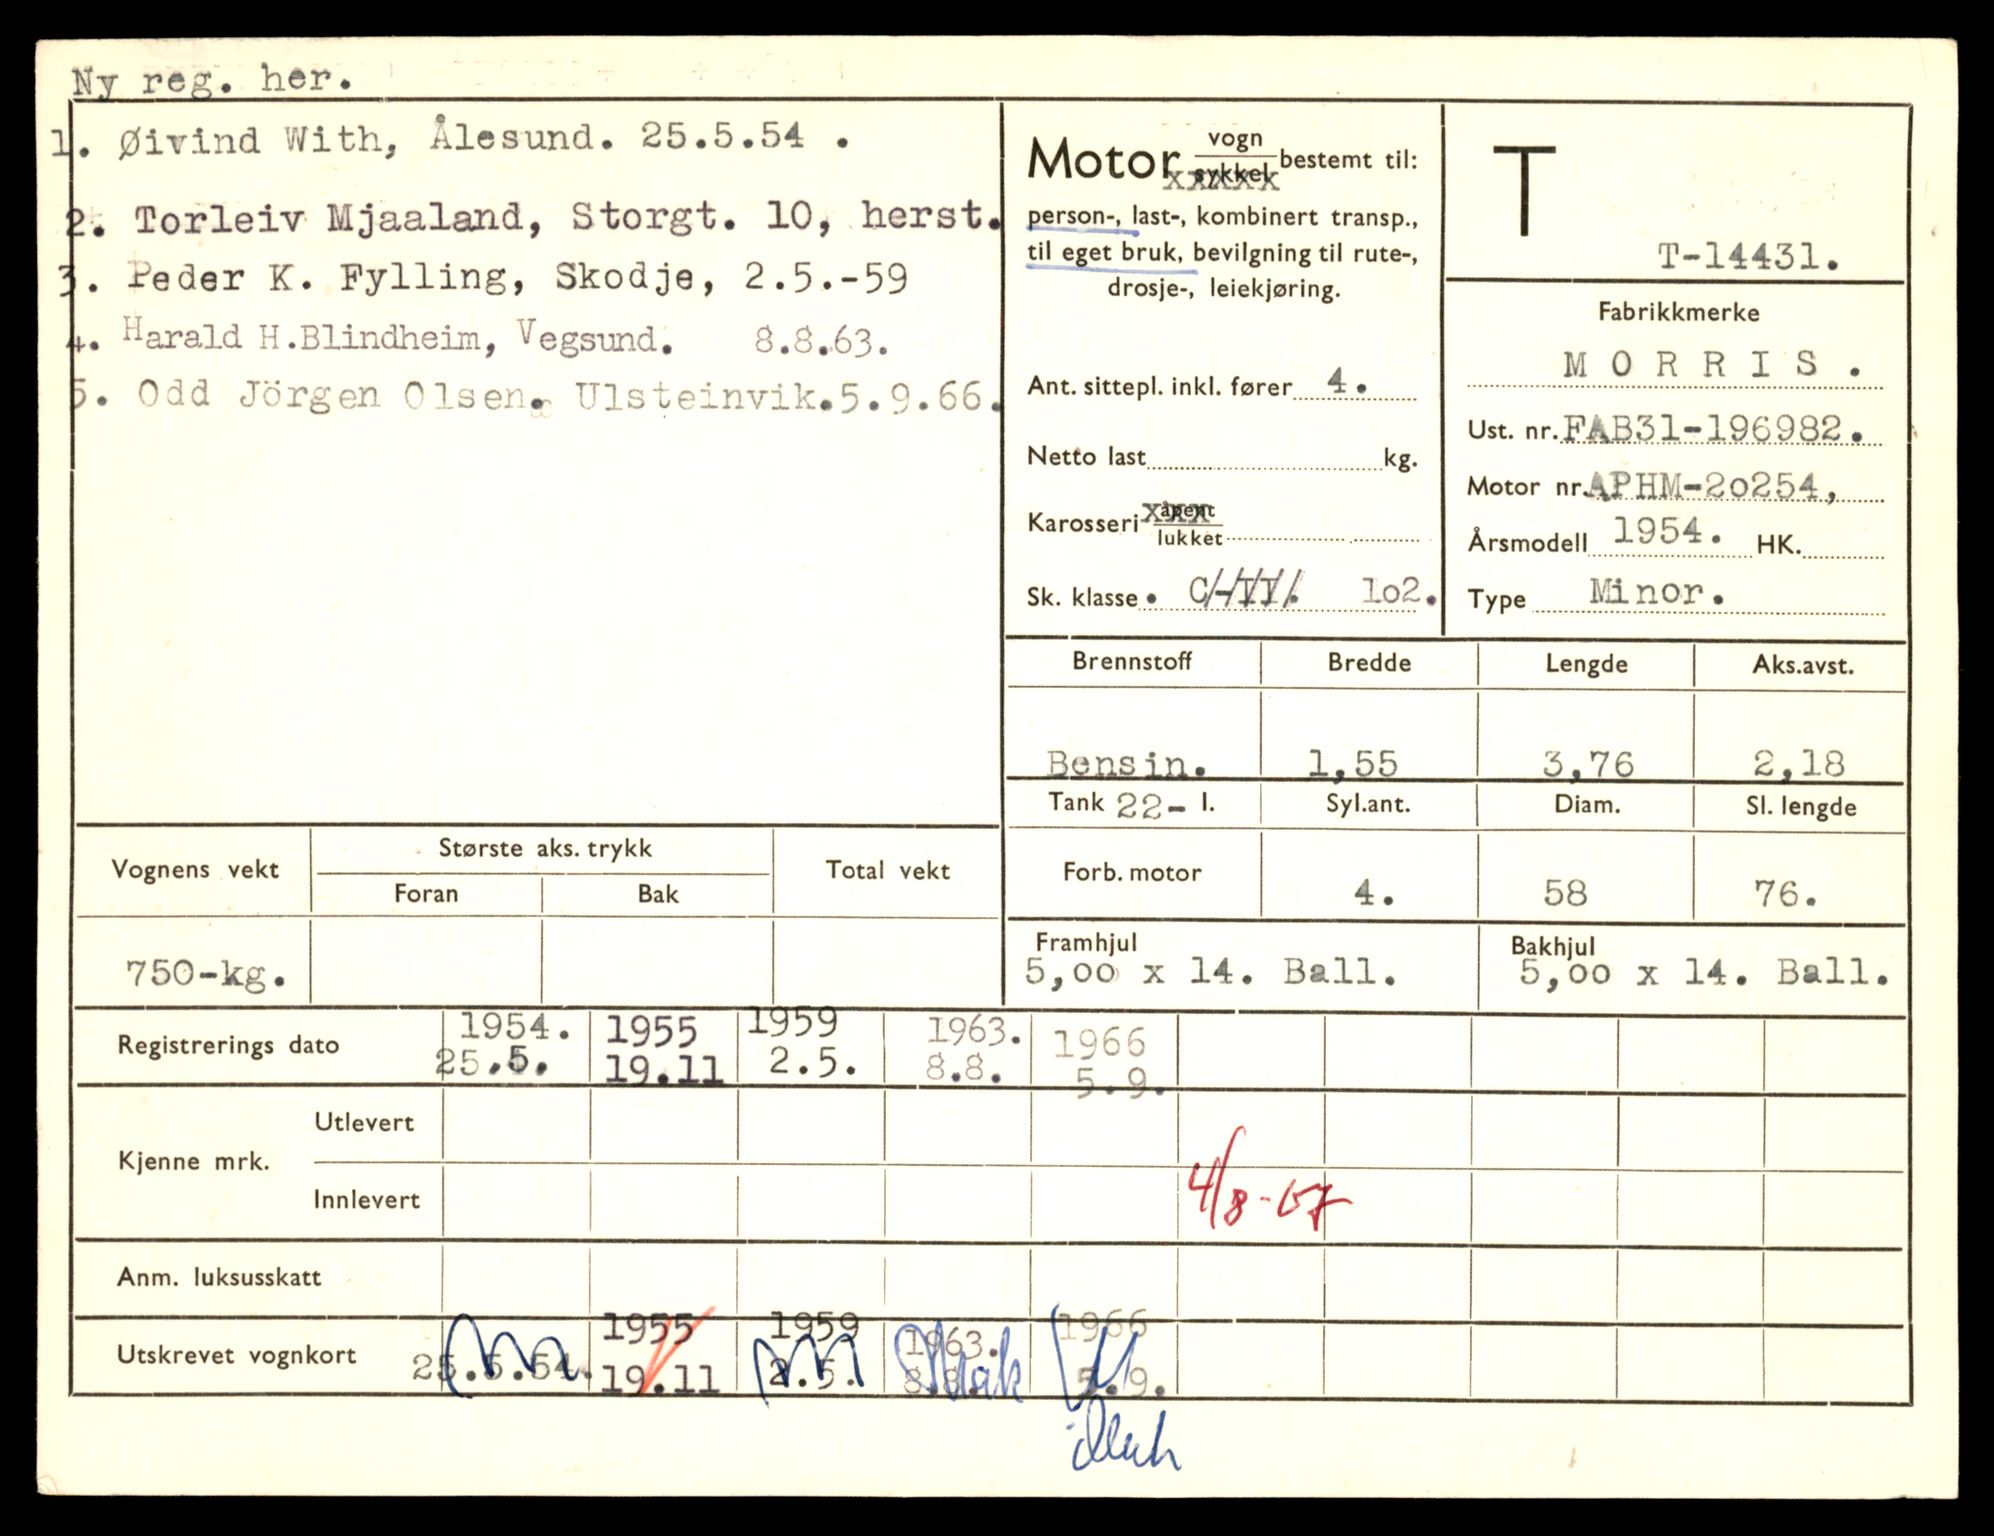 Ny reg. her.
1. Øivind With, Ålesund. 25.5.54 .
2. Torleiv Mjaaland, Storgt. 10, herst.
3. Peder K. Fylling, Skodje, 2.5.-59
4. Harald H.Blindheim, Vegsund. 8.8.63.
5. Odd Jörgen Olsen. Ulsteinvik.5.9.66.
Motor vogn
sykkel bestemt til:
person-, last-, kombinert transp.,
til eget bruk, bevilgning til rute-,
drosje-, leiekjøring.
Ant. sittepl. inkl. fører 4.
Netto last kg.
Karosseri åpent
lukket
Sk. klasse. C-II. 1o2.
T
T-14431.
Fabrikkmerke
M O R R I S .
Ust. nr. FAB31-196982.
Motor nr. APHM-2o254,
Årsmodell 1954. HK.
Type Minor.
Brennstoff Bredde Lengde Aks.avst.
Bensin. 1,55 3,76 2,18
Tank 22- l. Syl.ant. Diam. Sl. lengde
Forb. motor 4. 58 76.
Framhjul Bakhjul
5,oo x 14. Ball. 5,oo x 14. Ball.
Vognens vekt Største aks. trykk Total vekt
Foran Bak
750-kg.
Registrerings dato 1954. 1955 1959 1963. 1966
25.5. 19.11 2.5. 8.8. 5.9.
Kjenne mrk.
Utlevert
Innlevert 4/8-67
Anm. luksusskatt
Utskrevet vognkort 25.5.54. 1955 1959 1963. 1966
19.11 2.5. 8.8. 5.9.